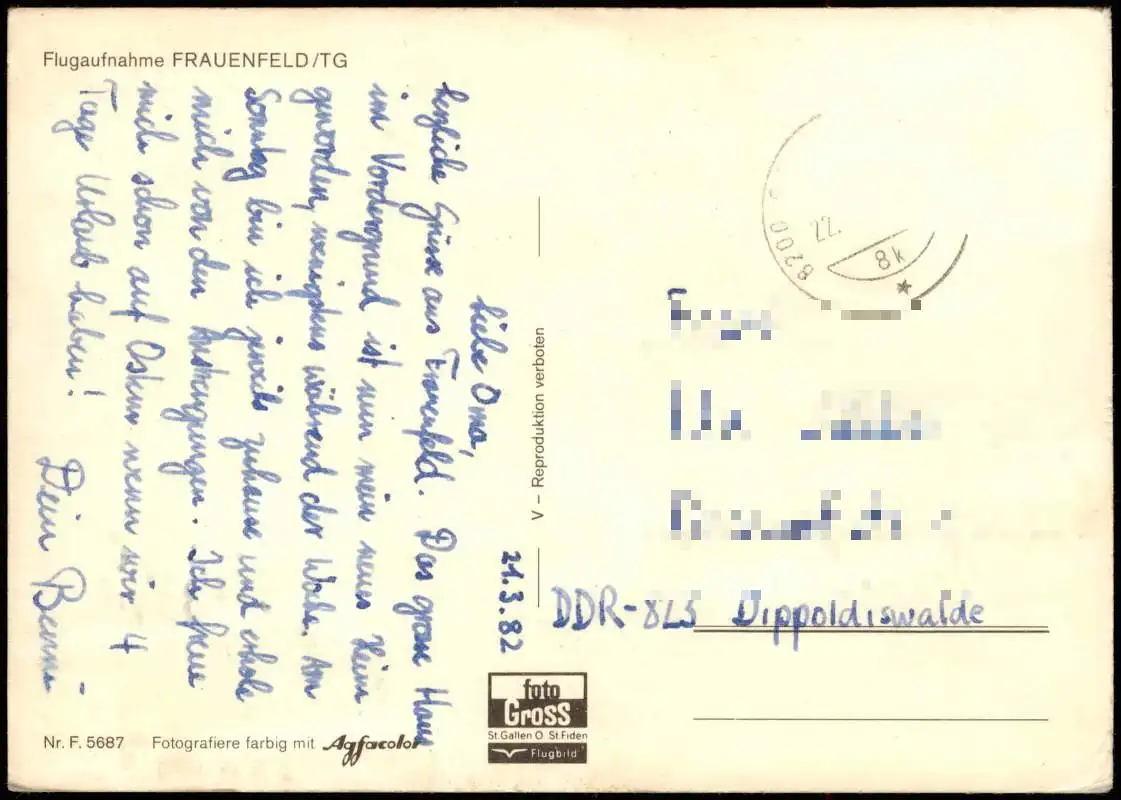 Flugaufnahme FRAUENFELD/TG
21.3.82
Liebe Oma,
herzliche Grüsse aus Frauenfeld. Das grosse Haus
im Vordergrund ist nun mein neues Heim
geworden, wenigstens während der Woche. Am
Sonntag bin ich jeweils zuhause und erhole
mich von den Anstrengungen. Ich freue
mich schon auf Ostern wenn wir 4
Tage Urlaub haben!
Dein
V – Reproduktion verboten
8200
22.
8k
DDR-825 Dippoldiswalde
foto
Gross
St.Gallen O St.Fiden
Flugbild
Nr. F. 5687 Fotografiere farbig mit Agfacolor